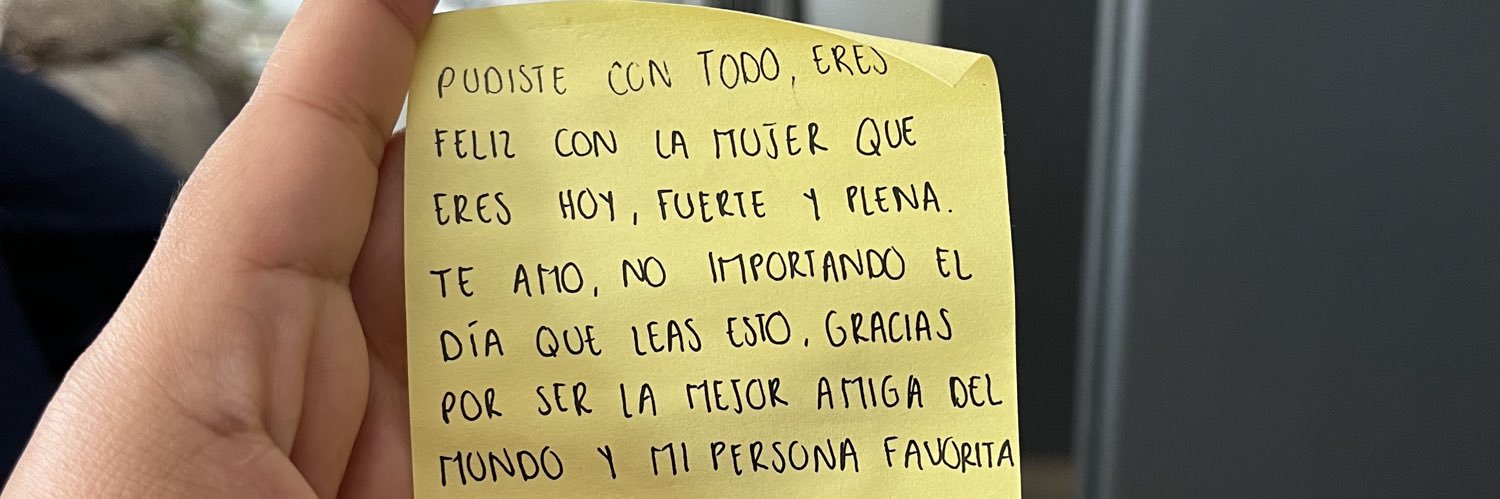 PUDISTE CON TODO, ERES
FELIZ CON LA MUJER QUE
ERES HOY, FUERTE Y PLENA.
TE AMO, NO IMPORTANDO EL
DÍA QUE LEAS ESTO, GRACIAS
POR SER LA MEJOR AMIGA DEL
MUNDO Y MI PERSONA FAVORITA